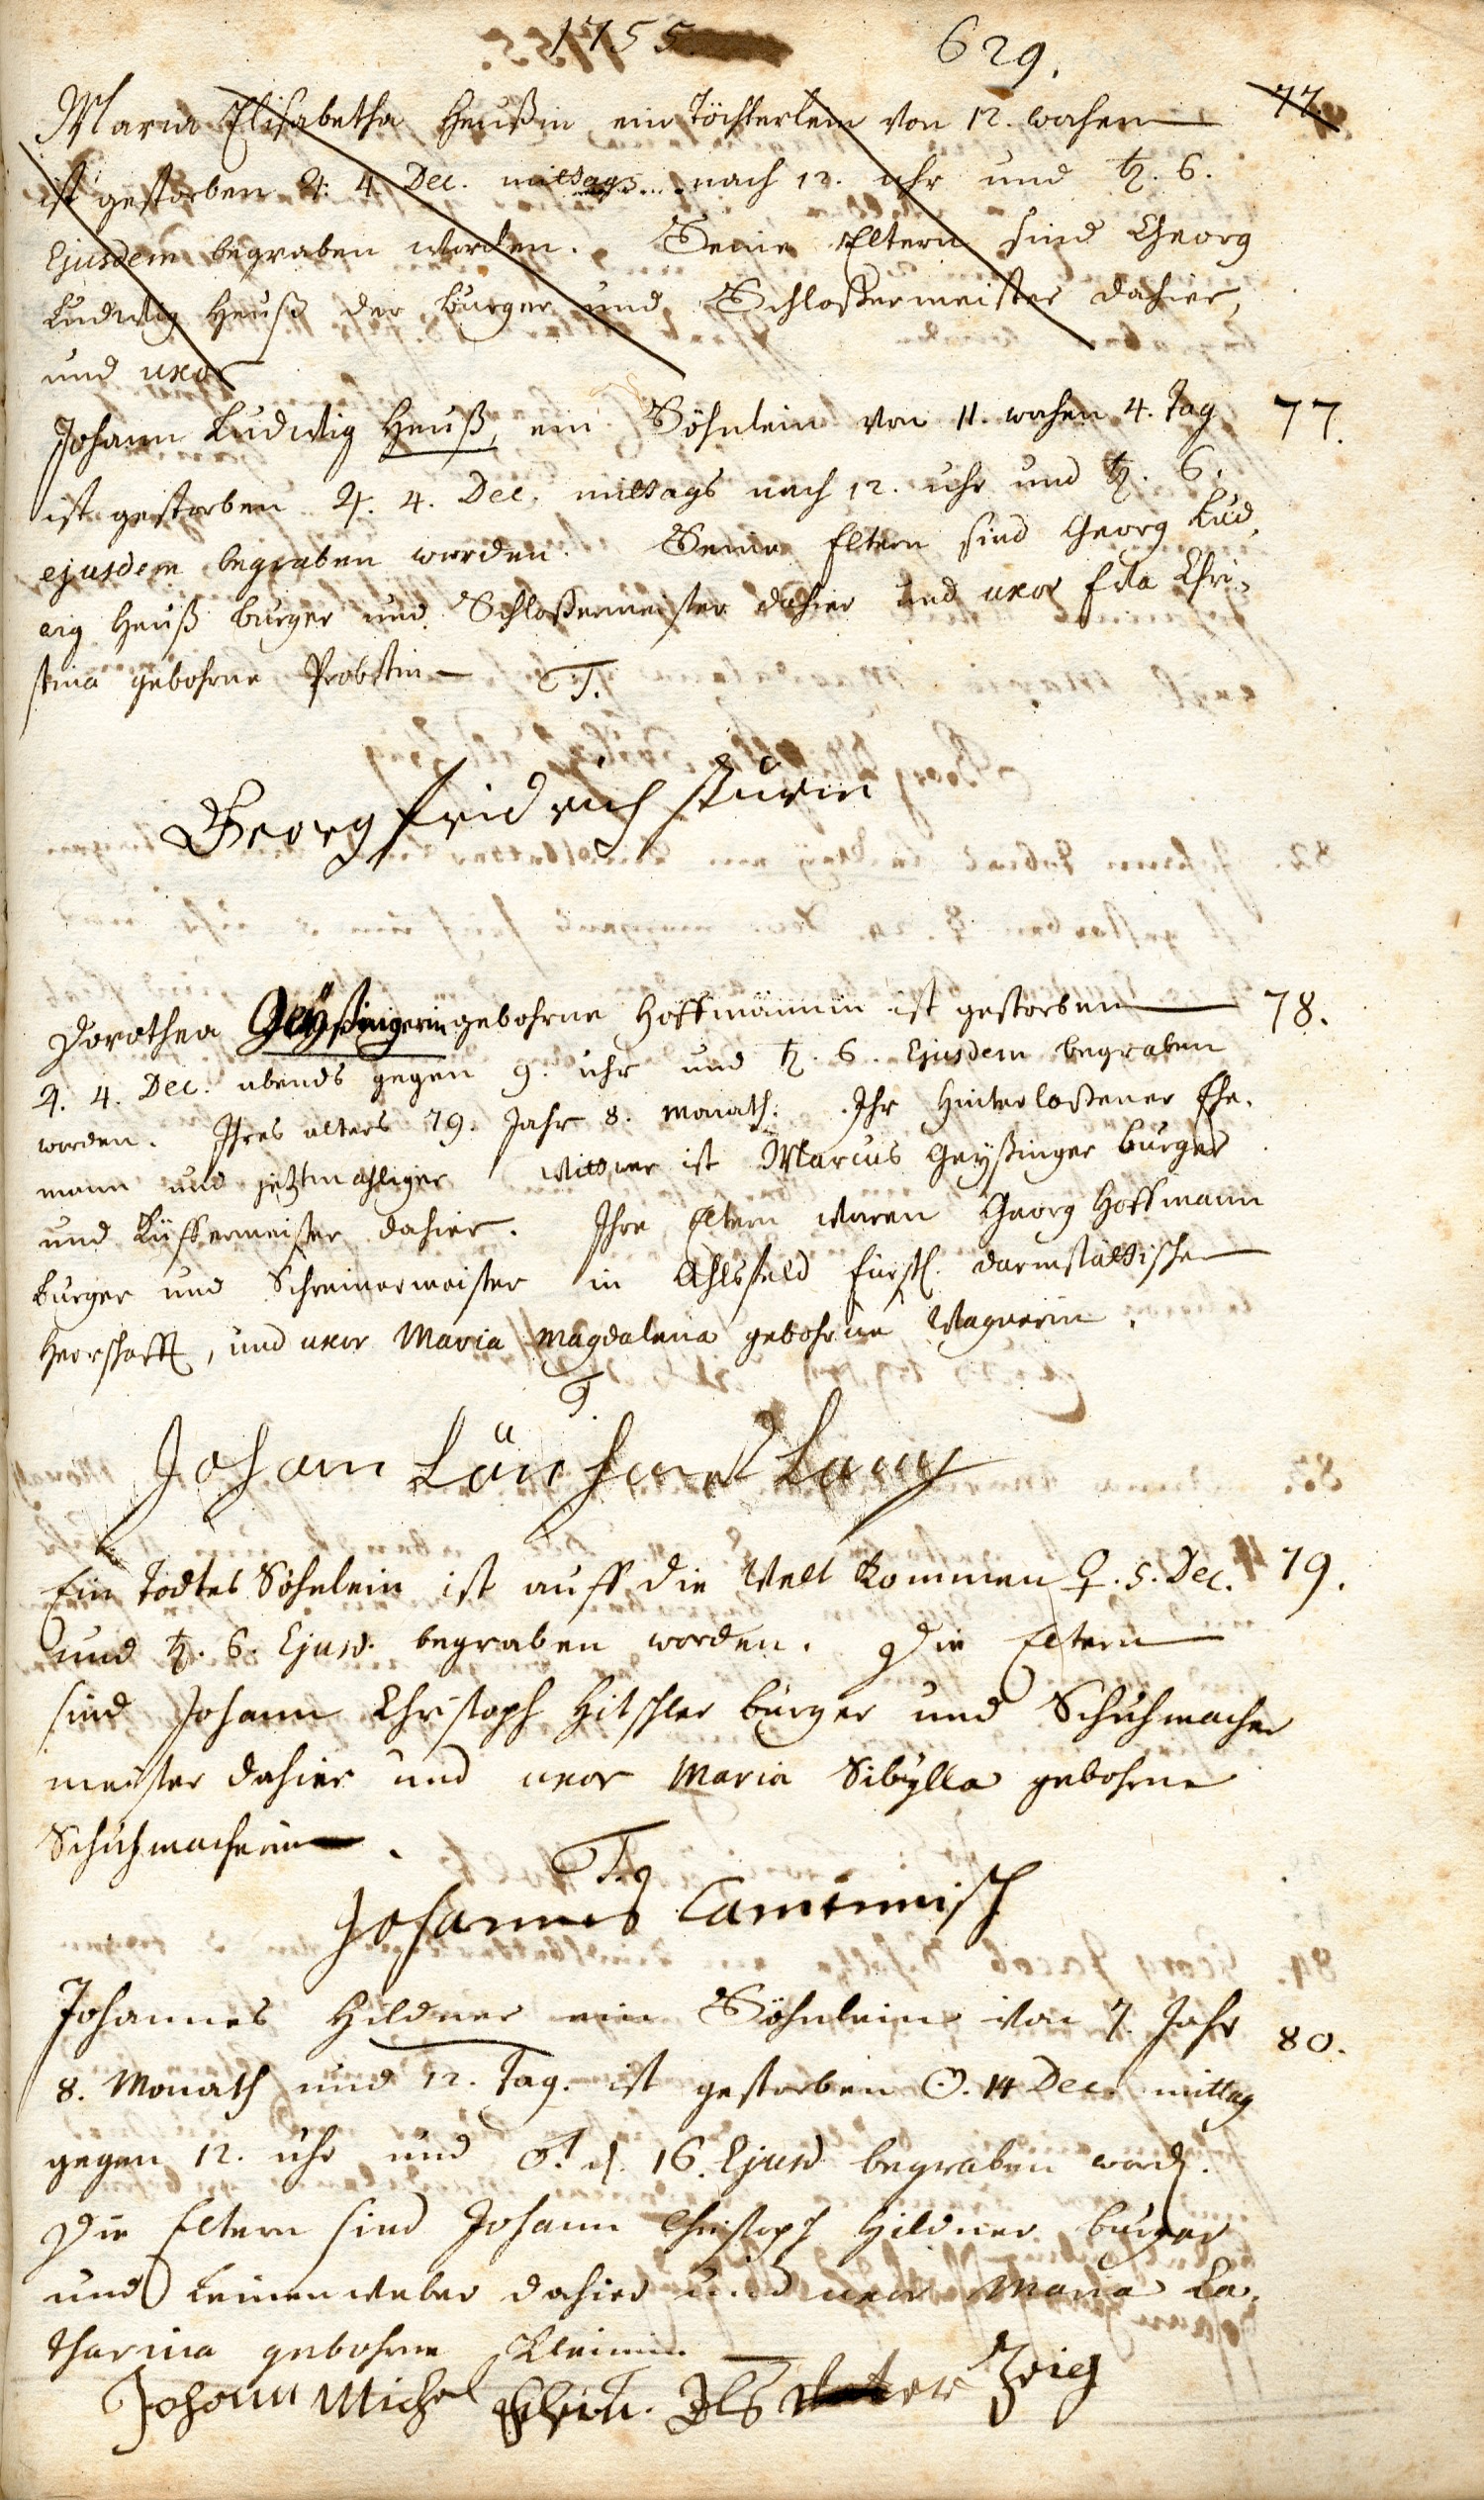 1755.
629.
Maria Elisabetha Heußin ein Töchterlein von 12. wochen 77.
ist gestorben ♃. 4. Dec. mittags nach 12. uhr und ♄. 6.
Ejusdem begraben worden. Seine Eltern sind Georg
Ludwig Heuß der burger und Schloßermeister dahier,
und uxor
Johann Ludwig Heuß, ein Söhnlein von 11. wochen 4. Tag 77.
ist gestorben ♃. 4. Dec. mittags nach 12. uhr und ♄. 6.
ejusdem begraben worden. Seine Eltern sind Georg Lud
wig Heuß burger und Schloßermeister dahier und uxor Eva Chri-
stina gebohrne Probstin
T.
Georg fridrich
Dorothea Geyßingerin gebohrne Hoffmännin ist gestorben 78.
♃. 4. Dec. abends gegen 9. uhr und ♄. 6. Ejusdem begraben
worden. Ihres alters 79. Jahr 8. Monath. Ihr Hinterloßener Ehe-
mann und jetztmahliger Wittwer ist Marcus Geyßinger burger
und Küffermeister dahier. Ihre Eltern waren Georg Hoffmann
burger und Schreinermeister in Ahlsfeld fürstl. darmstättischer
Herrschafft, und uxor Maria Magdalena gebohrne Wagnerin.
T.
Johann Lang
Ein todtes Söhnlein ist auff die Welt kommen ♀. 5. Dec. 79.
und ♄. 6. Ejusd. begraben worden. Die Eltern
sind Johann Christoph Hitschler burger und Schuhmacher
meister dahier und uxor Maria Sibÿlla gebohrne
Schuhmacherin.
T.
Johannes
Johannes Hildner ein Söhnlein von 7. Jahr 80.
8. Monath und 12. Tag. ist gestorben ☉. 14 Dec. mittag
gegen 12. uhr und ♂. d. 16. Ejusd begraben word.
Die Eltern sind Johann Christoph Hildner burger
und Leinenweber dahier und uxor Maria Ca-
tharina gebohrne Kleinin
Johann Michel Als Zeig